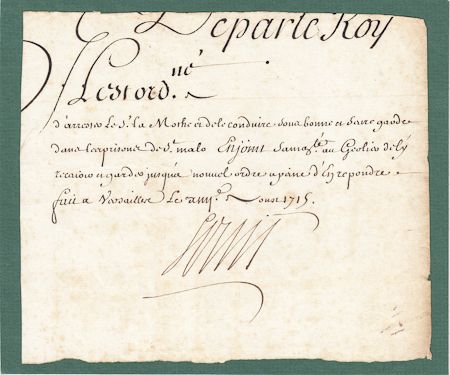 De par le Roy
Il est ord.né
d'arrester le S.r la Mothe et de le conduire sous bonne et seure garde
dans les prisons de S.t malo Enjoint Sa ma.té au Geolier de l'y
recevoir et garder jusqu'a nouvel ordre a peine d'En repondre
fait a Versailles Le aoust 1715.
Louis